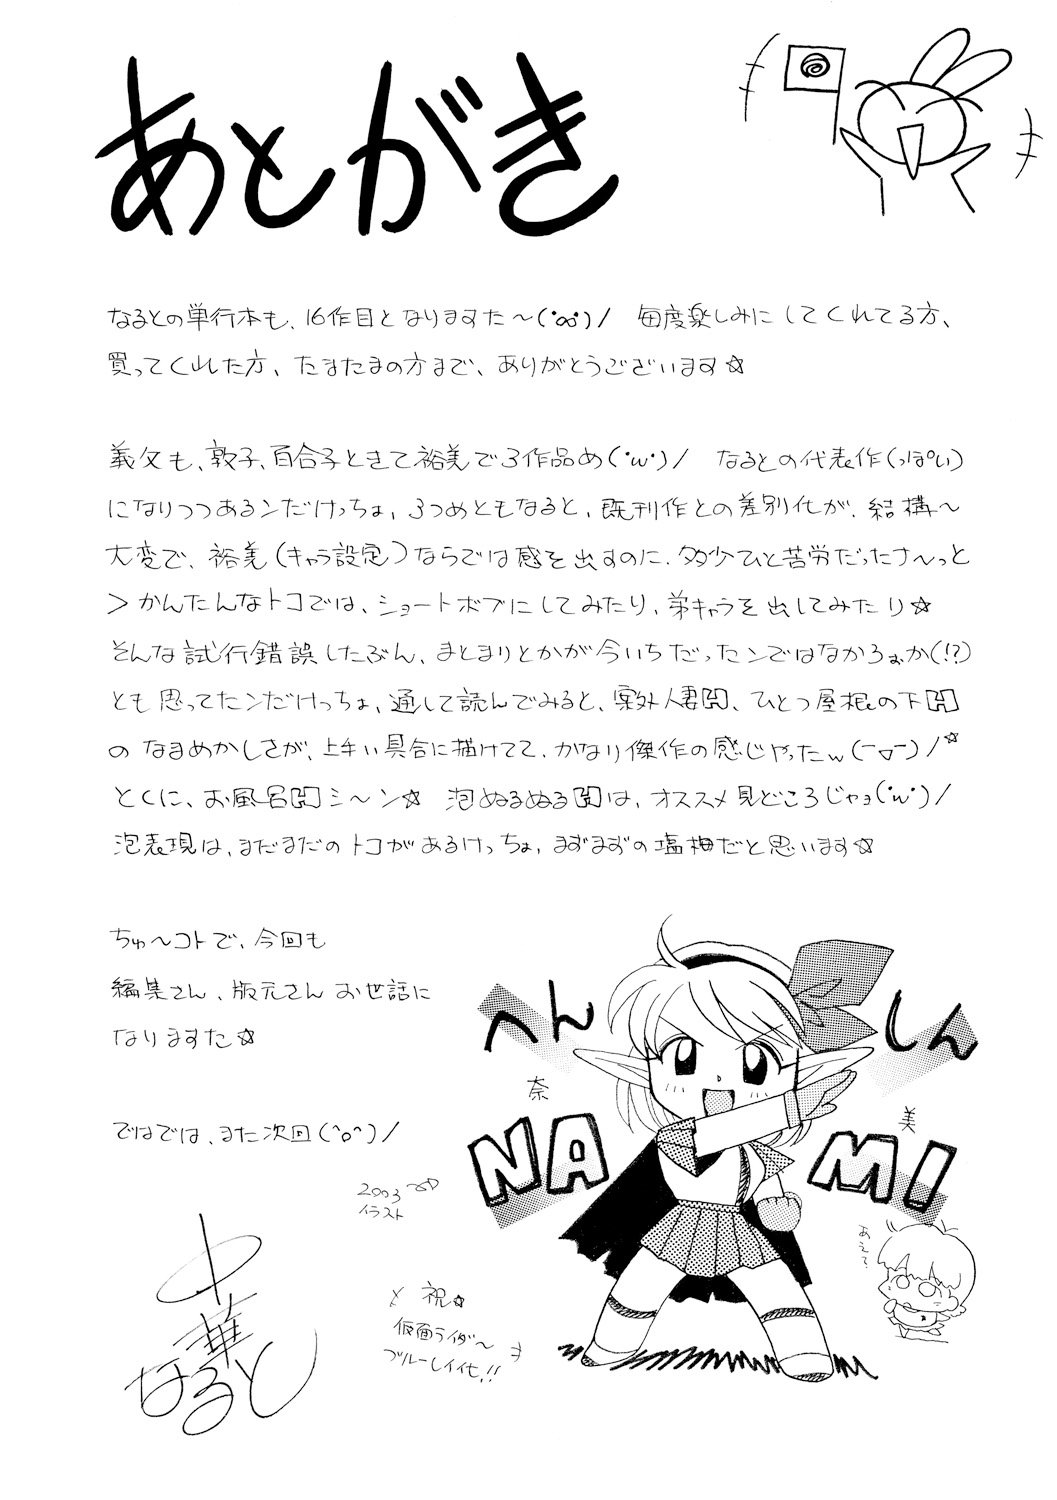 あとがき
なるとの単行本も、16作目となりますた～(°∞°)/　毎度楽しみにしてくれてる方、
買ってくれた方、たまたまの方まで、ありがとうございます☆
義父も、敦子、百合子ときて裕美で3作品め(°ω°)/　なるとの代表作(っぽい)
になりつつあるンだけっちょ、3つめともなると、既刊作との差別化が、結構～
大変で、裕美(キャラ設定)ならでは感を出すのに、多少ひと苦労だったナ～っと
＞かんたんなトコでは、ショートボブにしてみたり、弟キャラを出してみたり☆
そんな試行錯誤したぶん、まとまりとかが今いちだったンではなかろぉか(!?)
とも思ってたンだけっちょ、通して読んでみると、案外人妻H、ひとつ屋根の下H
のなまめかしさが、上手い具合に描けてて、かなり傑作の感じやったw(￣▽￣)/☆
とくに、お風呂Hシ～ン☆　泡ぬるぬるHは、オススメ見どころじゃョ(°ω°)/
泡表現は、まだまだのトコがあるけっちょ、まずまずの塩梅だと思います☆
ちゅ～コトで、今回も
編集さん、版元さんお世話に
なりますた☆
ではでは、また次回(^o^)/
へんしん
奈美
NAMI
2003
イラスト
あえて?
と祝☆
仮面ライダ～
ブルーレイ化!!
中華
なると